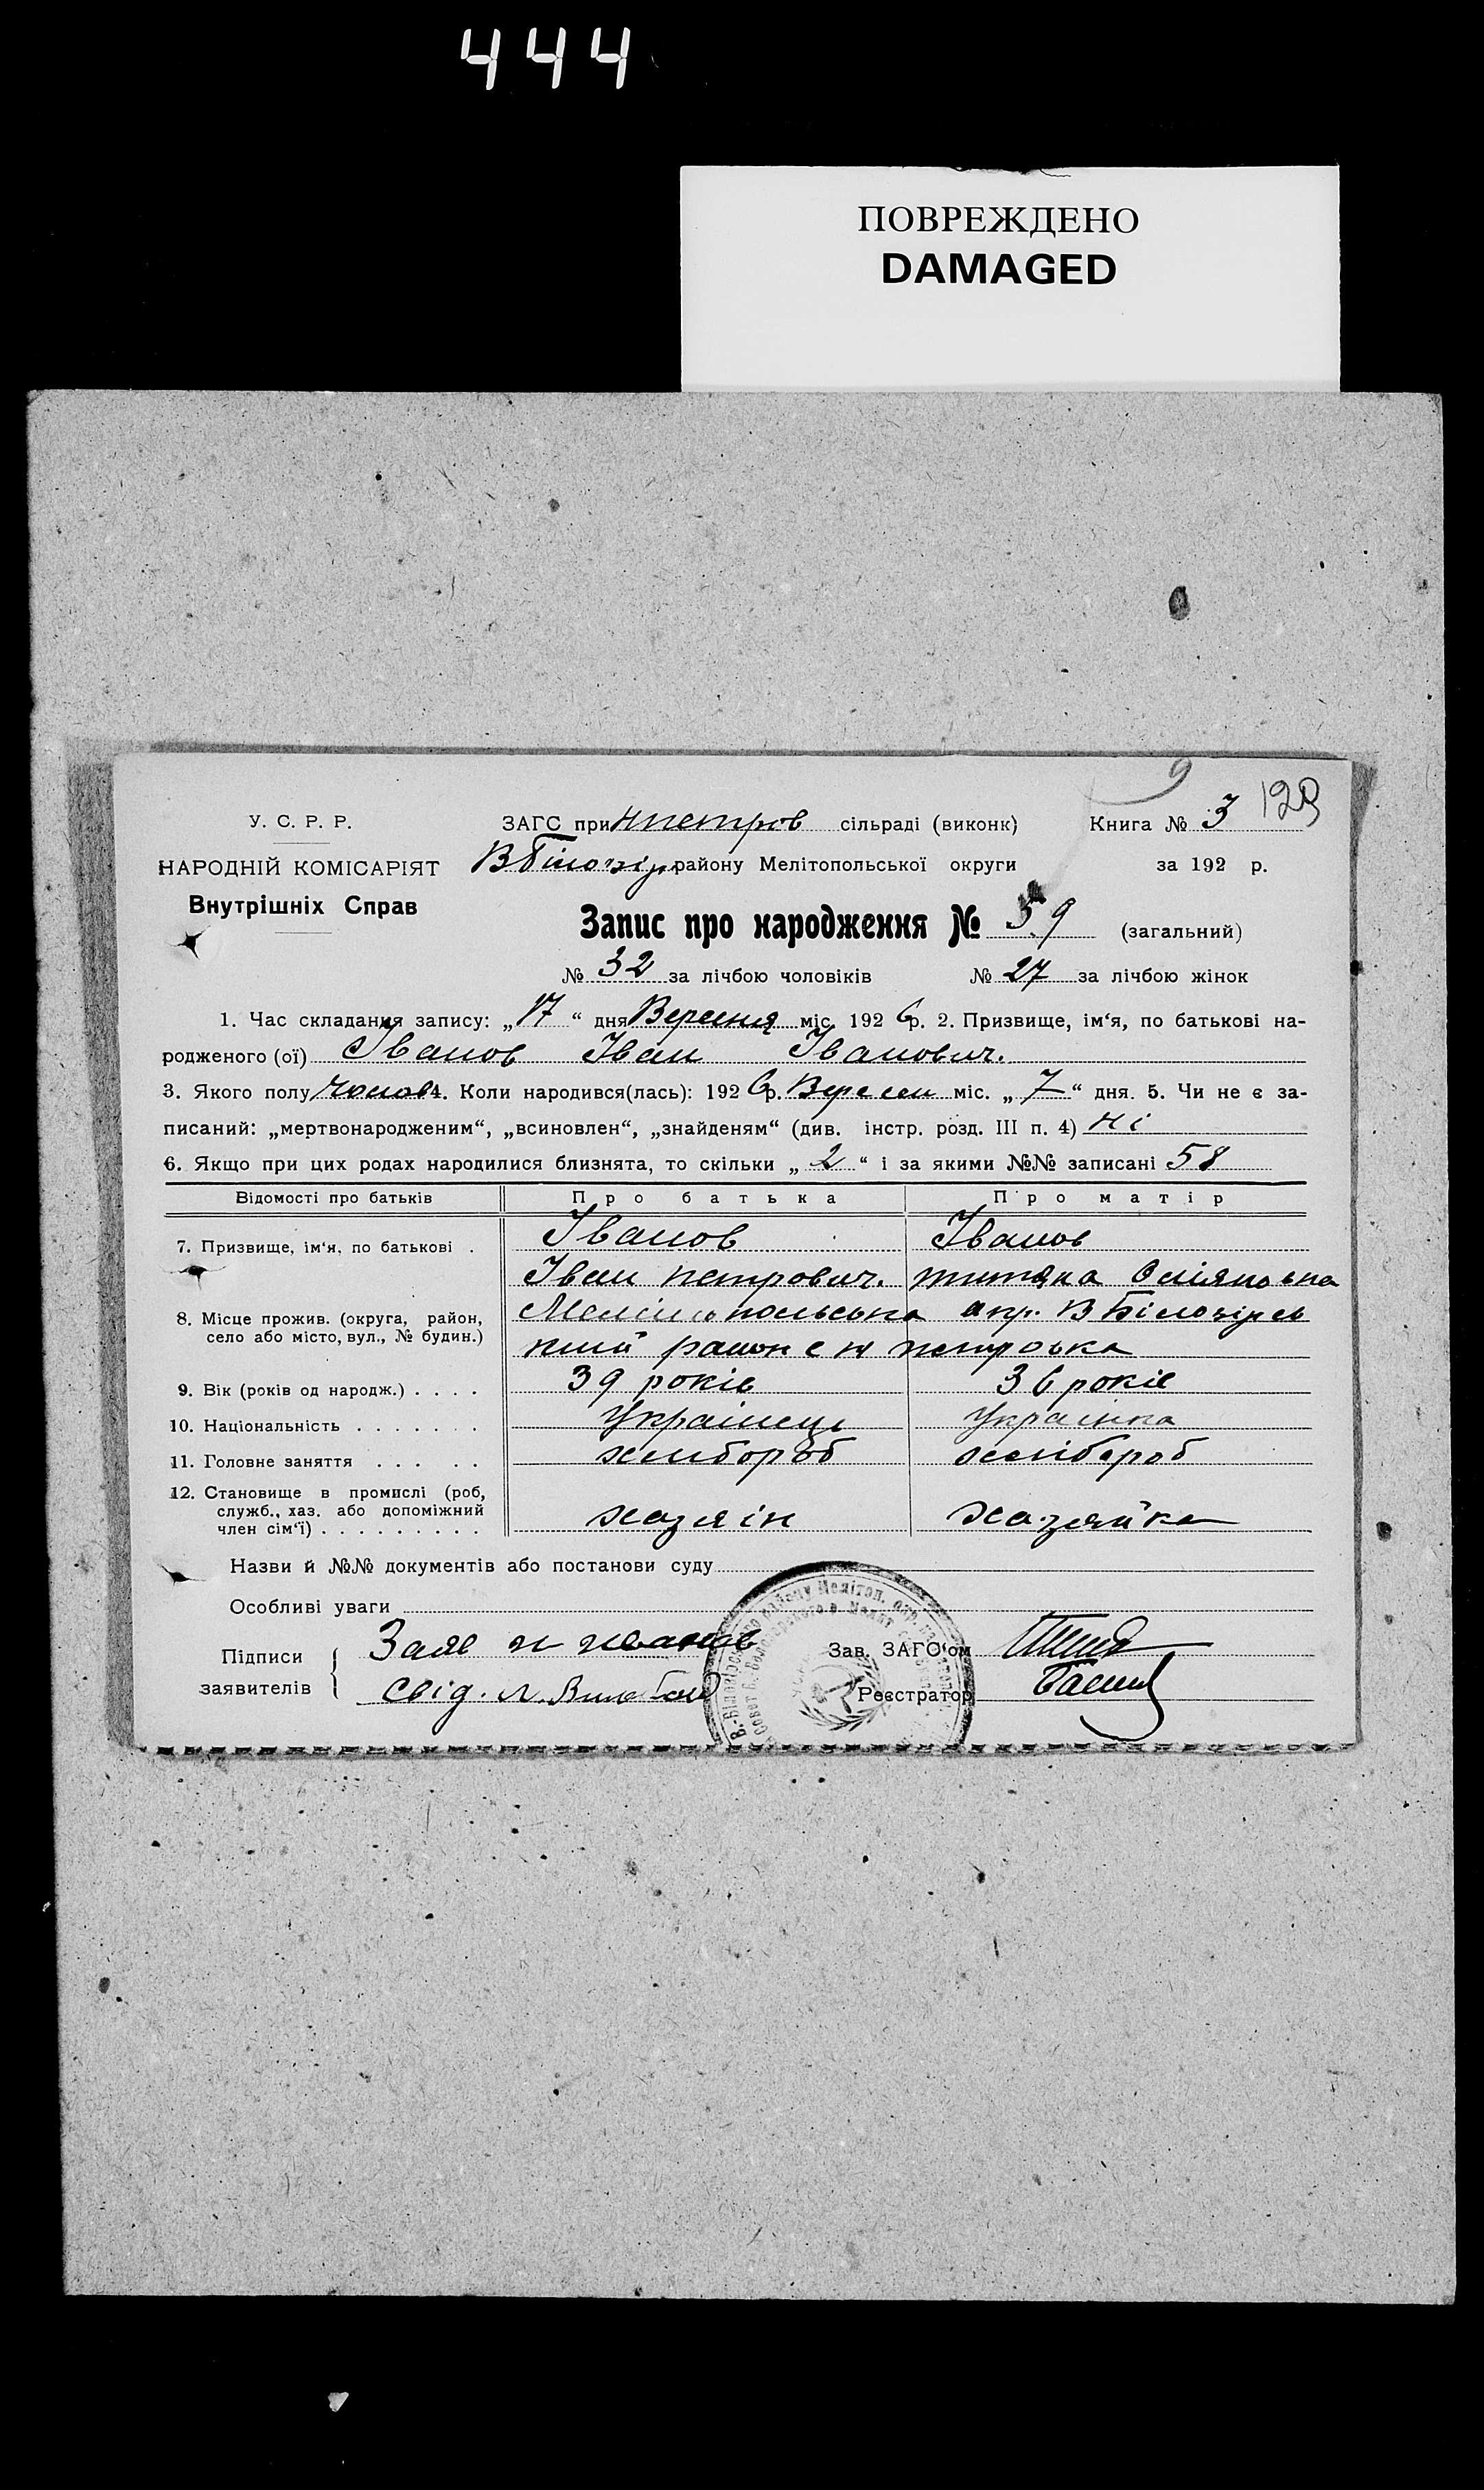 444
ПОВРЕЖДЕНО
DAMAGED
9
129
У. С. Р. Р.
ЗАГС при Нпетров сільраді (виконк)
Книга № 3
НАРОДНІЙ КОМІСАРІЯТ
ВБілозір. району Мелітопольської округи
за 192 р.
Внутрішніх Справ
Запис про народження № 59 (загальний)
№ 32 за лічбою чоловіків № 27 за лічбою жінок
1. Час складання запису: „17“ дня Вересня міс. 1926 р. 2. Призвище, ім‘я, по батькові на-
родженого (ої) Іванов Іван Іванович.
3. Якого полу чолов 4. Коли народився(лась): 1926 р. Вересен міс. „7“ дня. 5. Чи не є за-
писаний: „мертвонародженим“, „всиновлен“, „знайденям“ (див. інстр. розд. III п. 4) Ні
6. Якщо при цих родах народилися близнята, то скільки „2“ і за якими №№ записані 58
Відомості про батьків Про батька Про матір
7. Призвище, ім‘я, по батькові . Іванов Іванов
Іван петрович.
8. Місце прожив. (округа, район, Мелітопольська окр. В Білозірсь
село або місто, вул., № будин.) кий район с н петровка
9. Вік (років од народж.) . . . . 39 років 36 років
10. Національність . . . . . . . Українець Українка
11. Головне заняття . . . . . хлібороб хлібороб
12. Становище в промислі (роб,
служб., хаз. або допоміжний
член сім‘ї) . . . . . . . . . хазяін хазяйка
Назви й №№ документів або постанови суду
Особливі уваги
Підписи
заявителів
Заяв и иванов
Свід. Л.
Зав. ЗАГС‘ом
Реєстратор